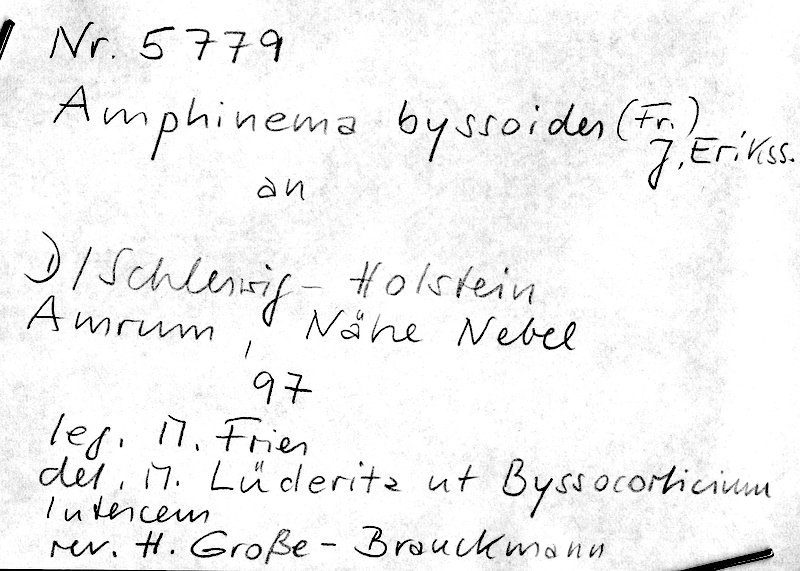 Nr. 5779
Amphinema byssoides (Fr.)
J. Erikss.
an
D/Schleswig-Holstein
Amrum, Nähe Nebel
97
leg. M. Fries
det. M. Lüderitz ut Byssocorticium
lutescens
rev. H. Große-Brauckmann